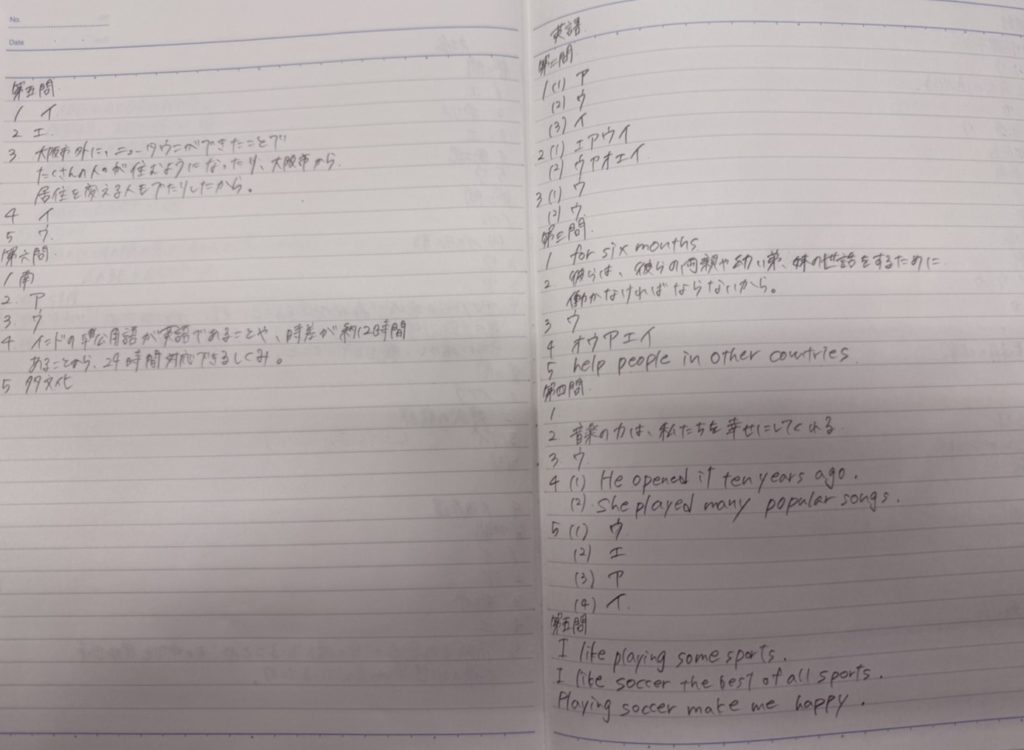 No.
Date
第五問
1 イ
2 エ
3 大阪市外に、ニュータウンができたことで
たくさんの人々が住むようになったり、大阪市から
居住を変える人もでたりしたから。
4 イ
5 ウ
第六問
1 南
2 ア
3 ウ
4 インドの準公用語が英語であることや、時差が約12時間
あることから、24時間対応できるしくみ。
5 多文化
英語
第二問
1 (1) ア
(2) ウ
(3) イ
2 (1) エアウイ
(2) ウアオエイ
3 (1) ウ
(2) ウ
第三問
1 for six months
2 彼らは、彼らの両親や幼い弟、妹の世話をするために
働かなければならないから。
3 ウ
4 オウアエイ
5 help people in other countries
第四問
1
2 音楽の力は、私たちを幸せにしてくれる
3 ウ
4 (1) He opened it ten years ago.
(2) She played many popular songs.
5 (1) ウ
(2) エ
(3) ア
(4) イ
第五問
I like playing some sports.
I like soccer the best of all sports.
Playing soccer make me happy.